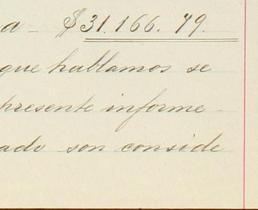 a - $31.166.79.
que hablamos se
presente informe
ado son conside